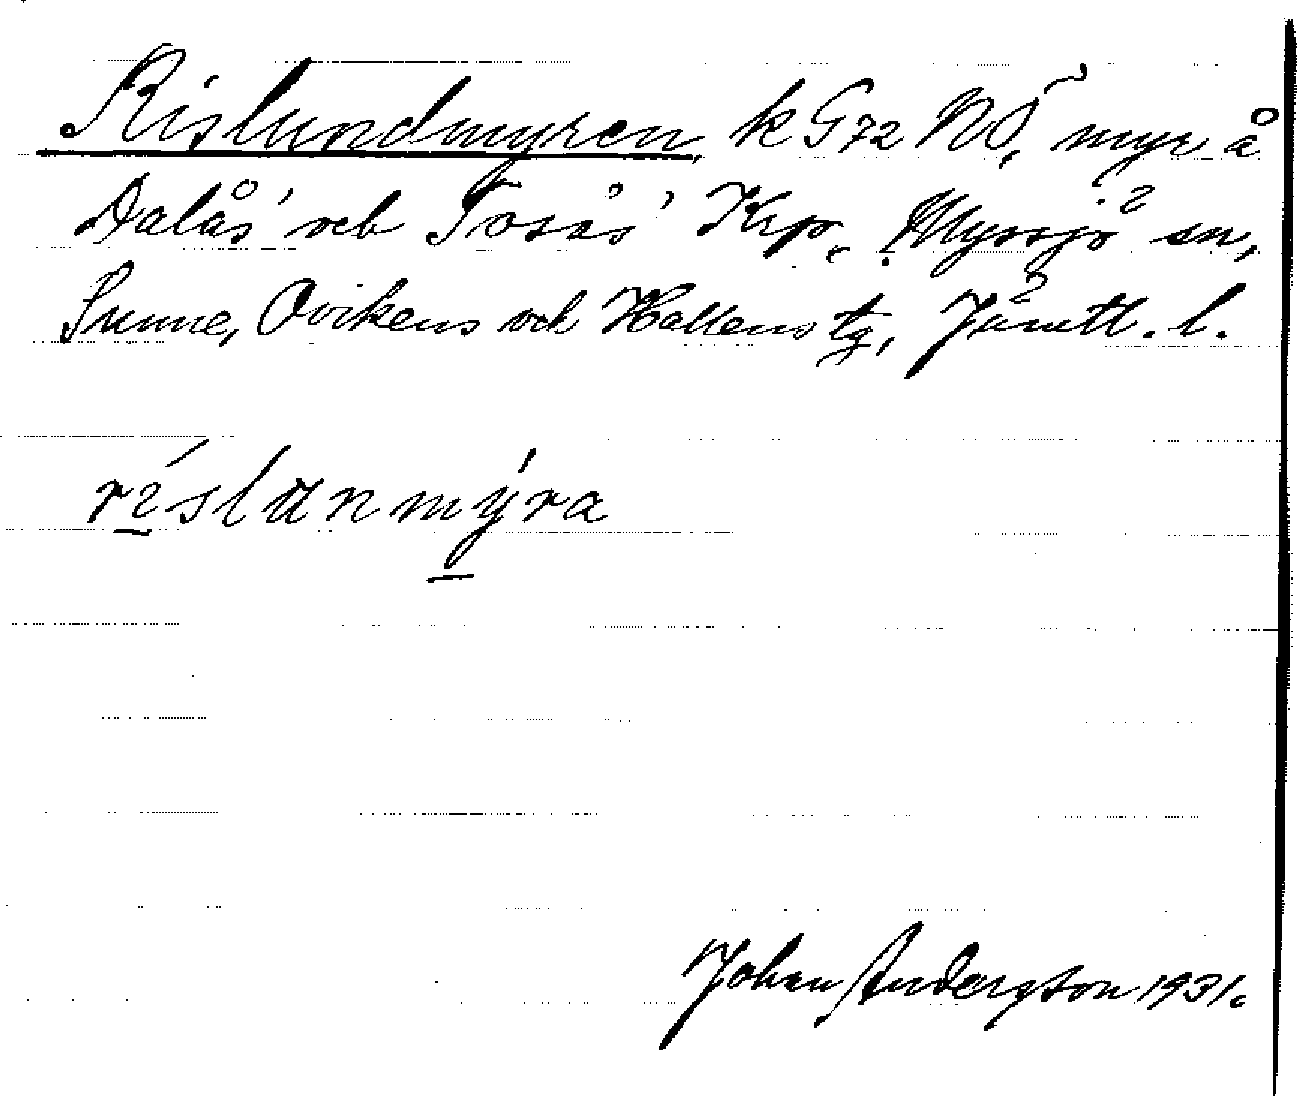 Rislundmyren, k G 72 NÖ, myr å
Dalås' och Tosås' Krp., Myssjö sn,
Sunne, Ovikens och Hallens tg, Jämtl. l.
réslanmýra
Johan Anderson 1931.